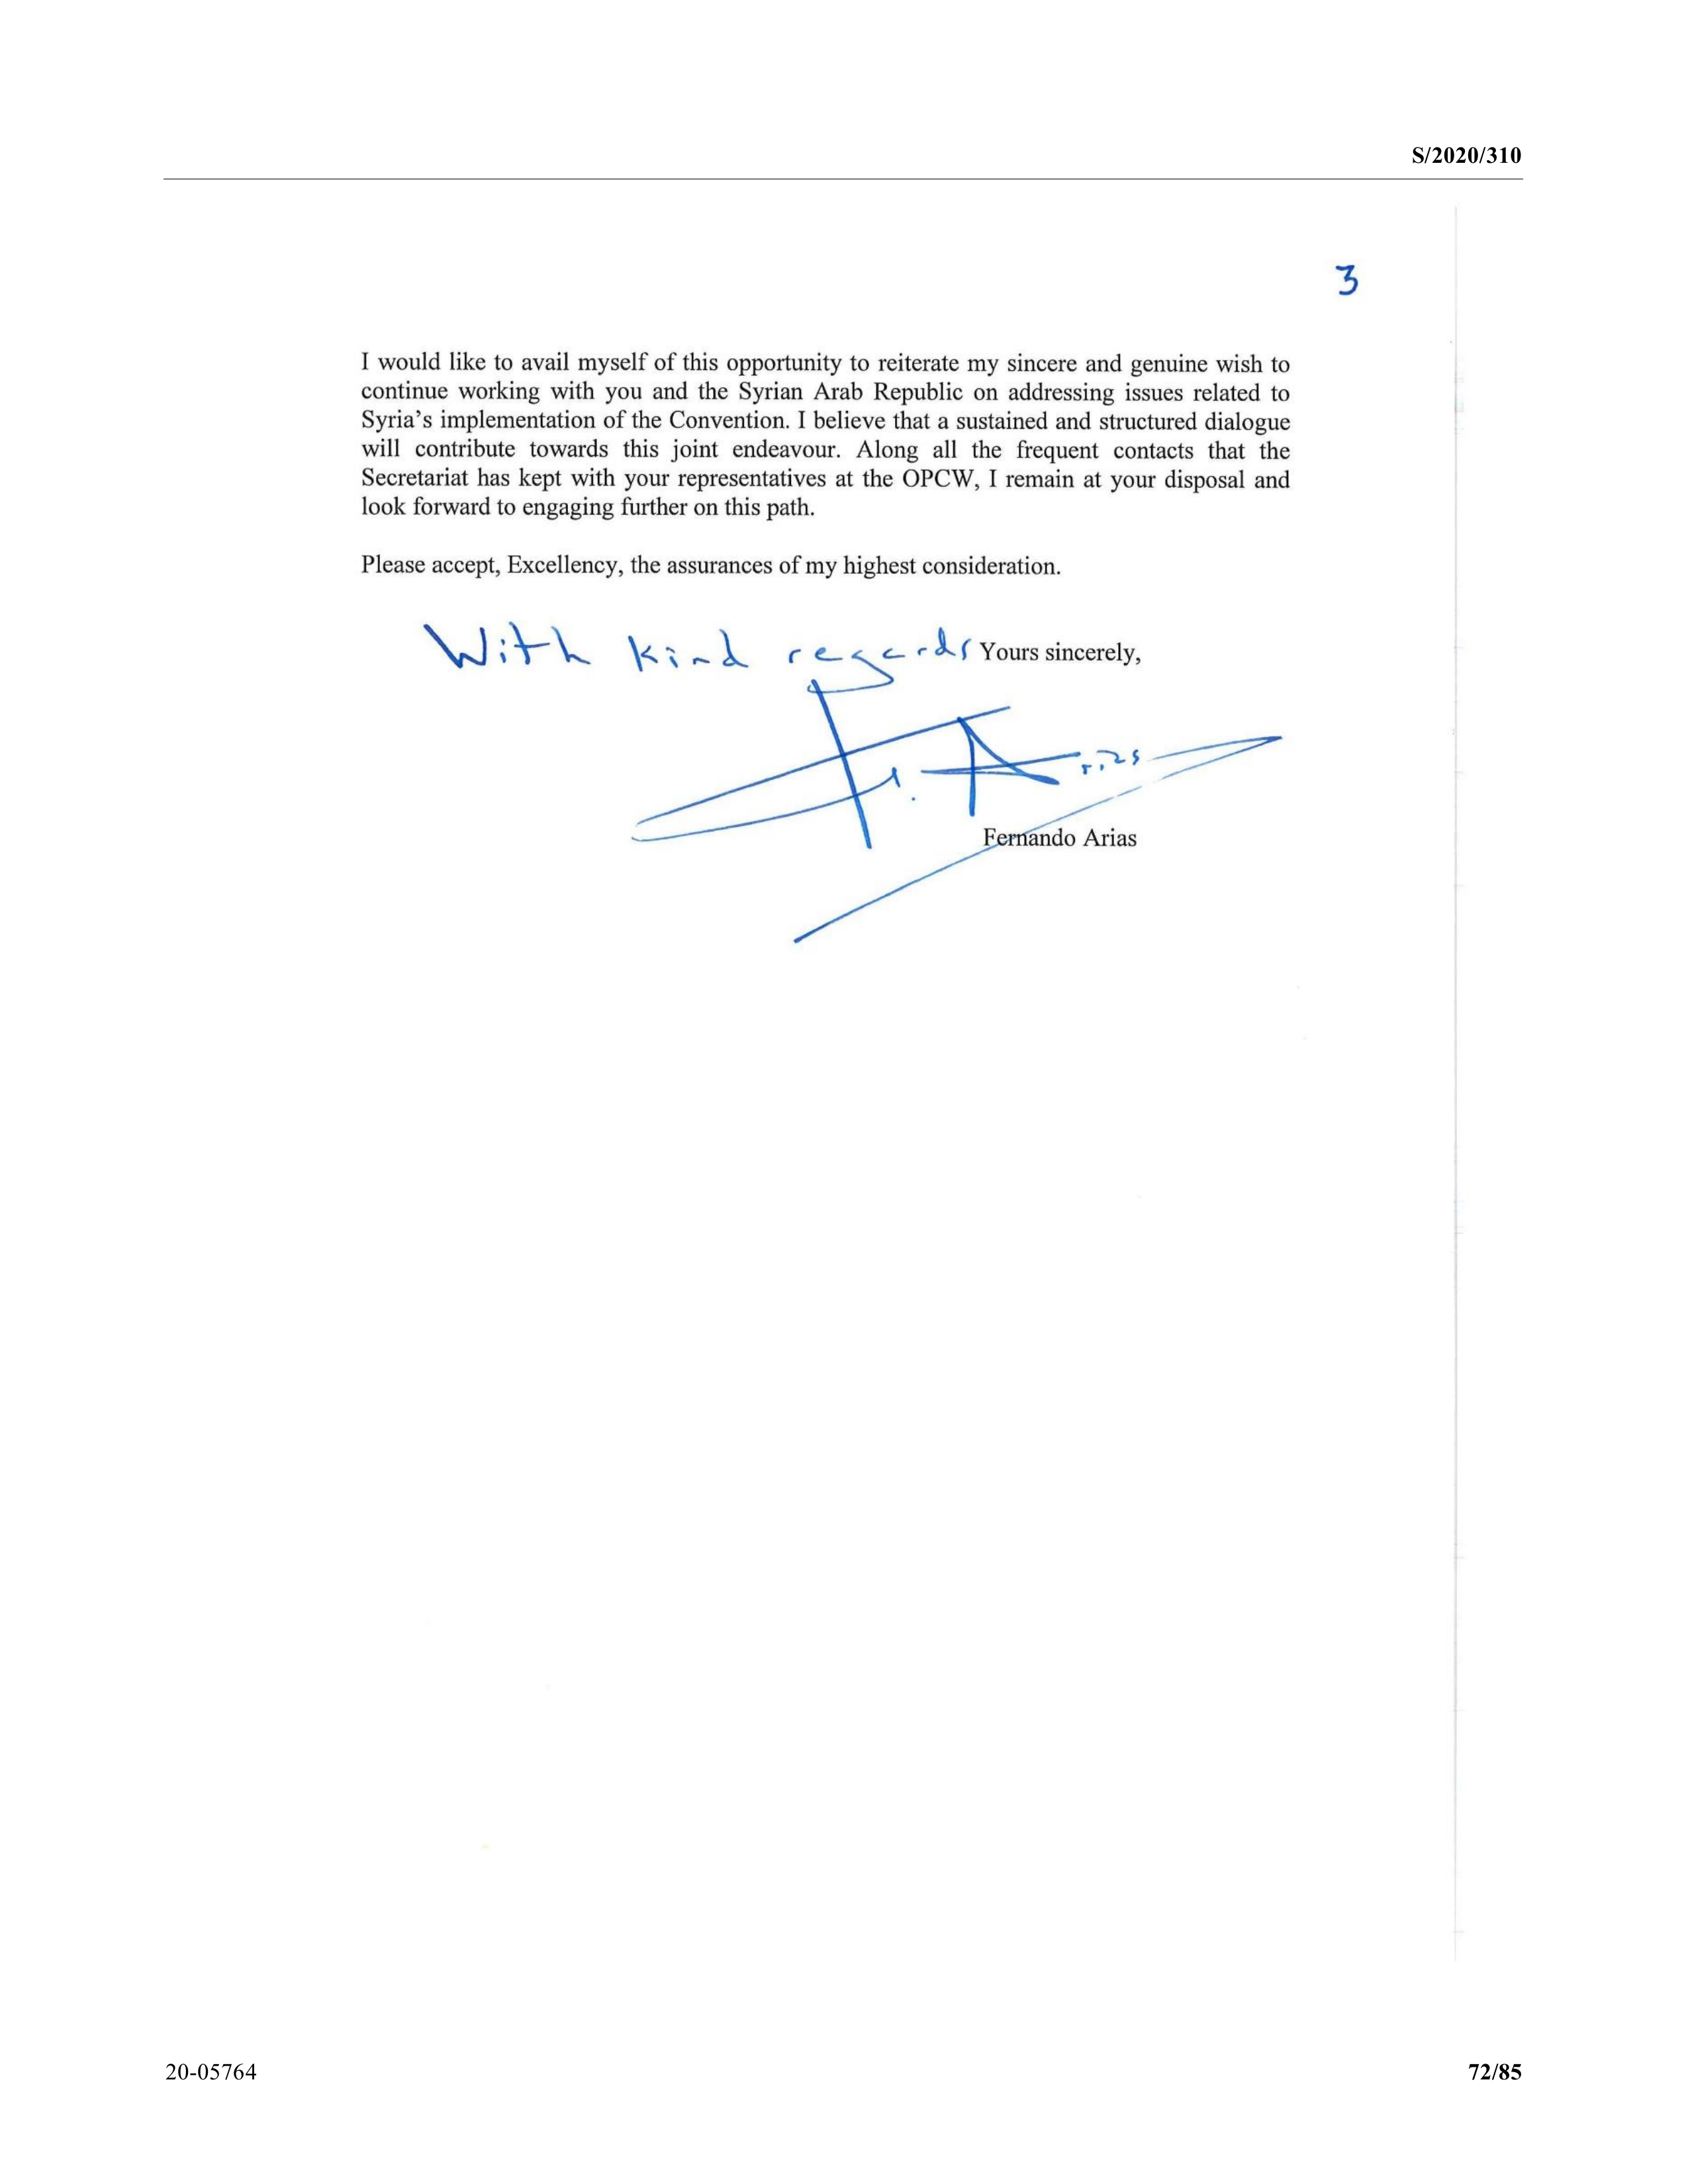 S/2020/310
3
I would like to avail myself of this opportunity to reiterate my sincere and genuine wish to
continue working with you and the Syrian Arab Republic on addressing issues related to
Syria's implementation of the Convention. I believe that a sustained and structured dialogue
will contribute towards this joint endeavour. Along all the frequent contacts that the
Secretariat has kept with your representatives at the OPCW, I remain at your disposal and
look forward to engaging further on this path.
Please accept, Excellency, the assurances of my highest consideration.
With kind regards Yours sincerely,
F. Arias
Fernando Arias
20-05764
72/85